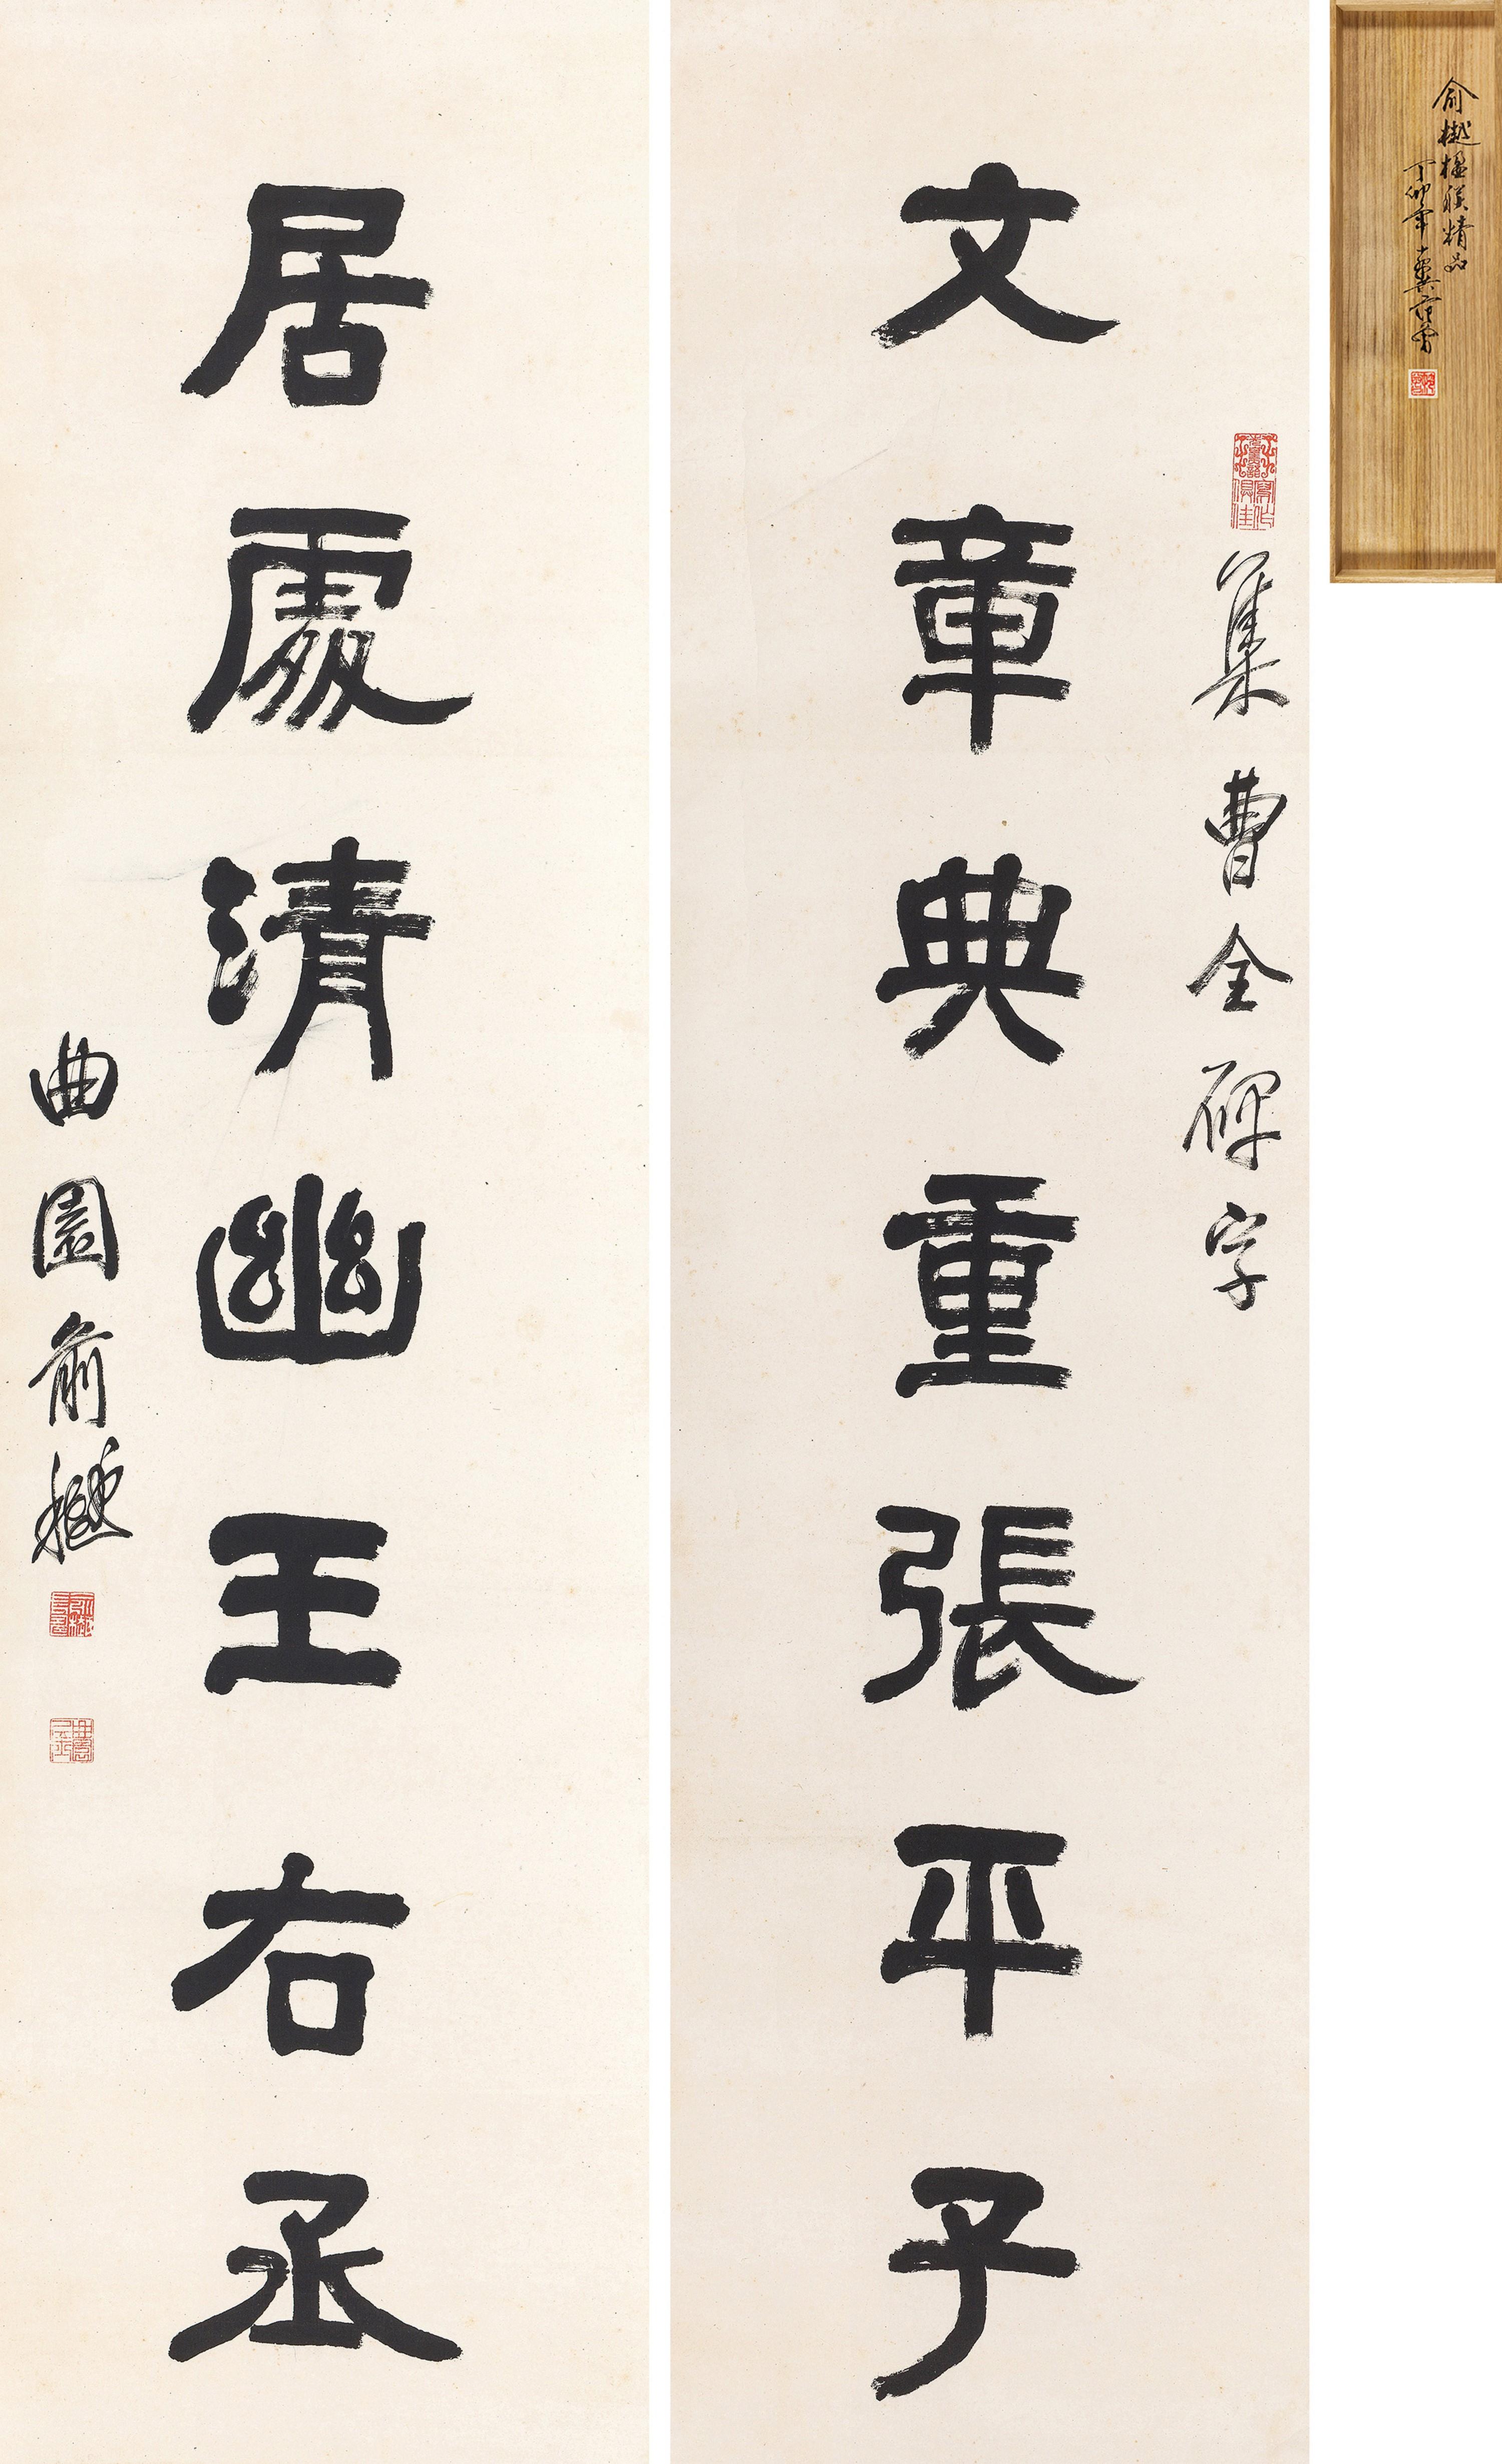 文章典重張平子
集曹全碑字
居處清幽王右丞
曲園俞樾
俞樾楹聯精品
丁卯年